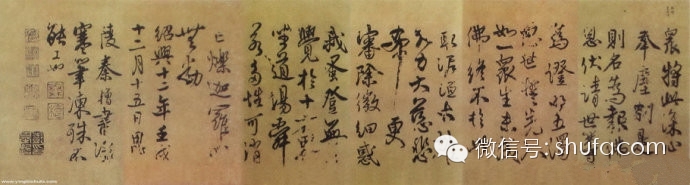 眾將此深心
奉塵剎是
則名為報
恩伏請世尊
為證明五濁
惡世誓先入
如一眾生未
佛終不於此
取泥洹大
力大慈悲
希更
審除微細惑
我蚤登無上
覺於十方
坐道場舜
若多性可消
亡爍迦羅心
無動
紹興十二年壬戌
十二月十五日毘
陵秦檜書
寒筆凍殊不
能工也
微信号: shufa_com